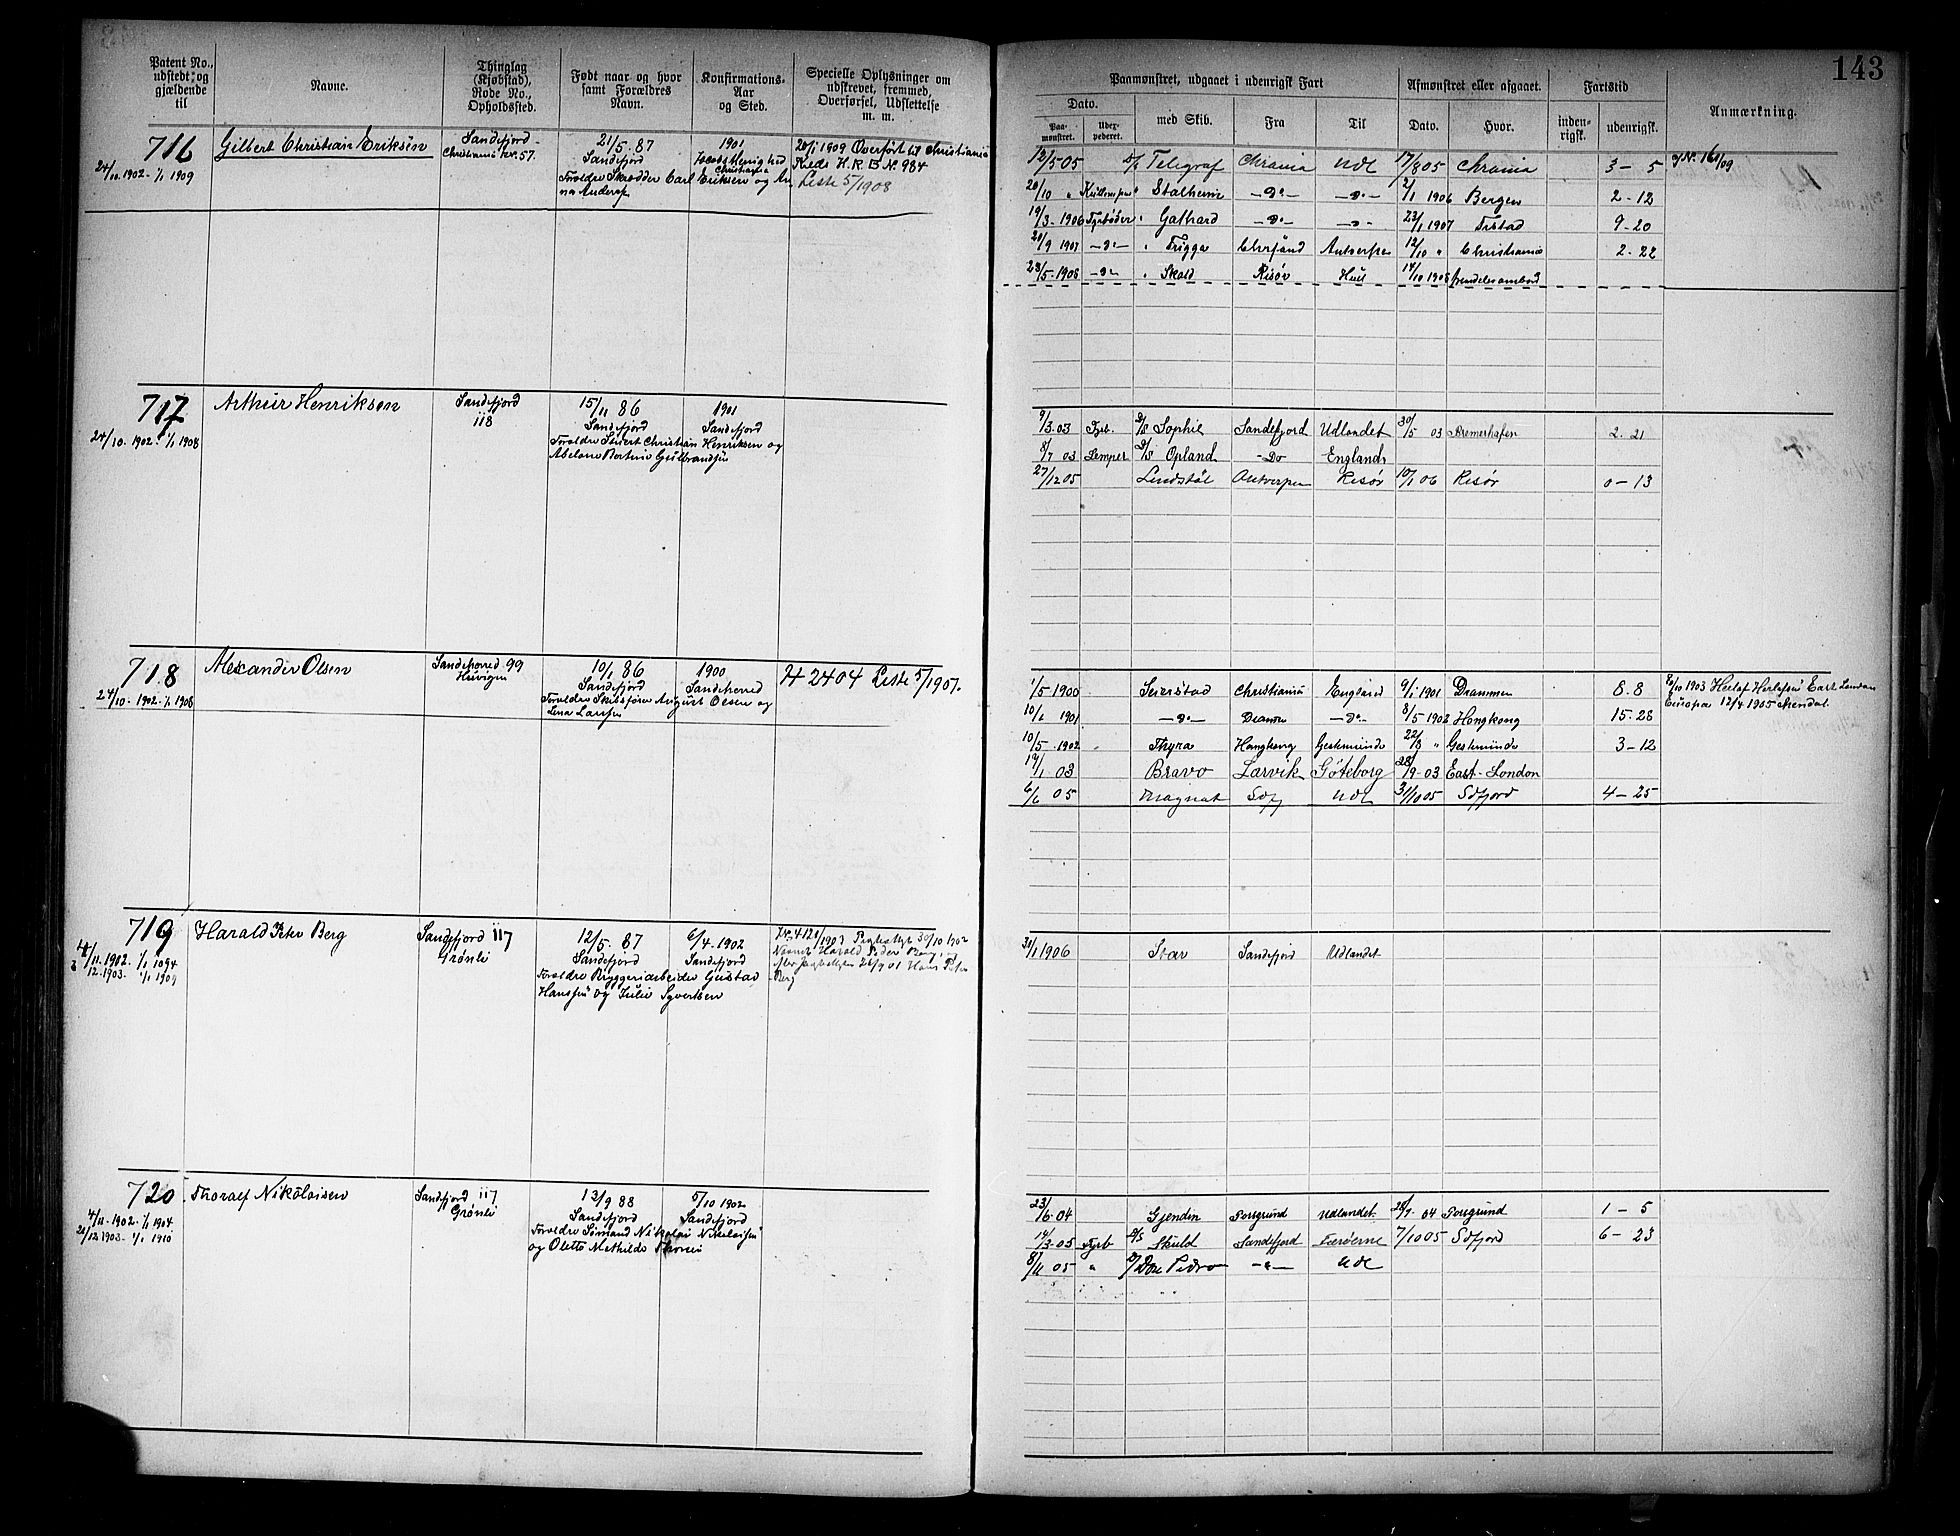 143
Patent No., udstedt og gjældende til
Navne.
Thinglag (Kjøbstad), Rode No., Opholdssted.
Født naar og hvor samt Forældres Navn.
Konfirmations-Aar og Sted.
Specielle Oplysninger om udskrevet, fremmed, Overførsel, Udslettelse m. m.
Paamønstret, udgaaet i udenrigsk Fart
Afmønstret eller afgaaet.
Fartstid
Anmærkning.
Dato.
Paa-mønstret.
Uder-pederet.
med Skib.
Fra
Til
Dato.
Hvor.
inden-rigsk.
udenrigsk.
716 Gilbert Christian Eriksen
24/10. 1902 - 1/1 1909
Sandefjord
21/5. 87
Sandefjord
Forældre Skrædder Carl Eriksen og Anna Anders
1901
Christiania
20/1 1909 Overført til Christiania
Kreds H. R. B N. 984
Liste 5/1908
12/5 05 D/S Telegraf Chrania Udl 17/8 05 Chrania 3 - 5
20/10 " Stalheim -"- -"- 2/1 1906 Bergen 2 - 12
19/3 - 1906 Fyrbøder " Gothard -"- -"- 22/1 1907 9 - 20
20/9 1907 -"- " Frigga Chrsand Antwerpen 12/10 " Christiania 2 - 22
23/5 - 1908 -"- " Skald Risør Hull 14/10 1908 fremdeles ombord
717 Arthur Henriksen
24/10. 1902. 1/1 1908
Sandefjord
118
15/11 86
Sandefjord
Forældre Sivert Christian Henriksen og
Abelone Bertine Gulbrandsen
1901
Sandefjord
9/3 03 Fyrb. D/S Sophie Sandefjord Udlandet 30/5 03 Bremerhafen 2. 21
8/7 03 Lemper D/S Opland - Do England
27/12 05 Lindstøl Antverpen Risør 10/1 06 Risør 0 - 13
718 Alexander Olsen
24/10. 1902. 1/1 1908
Sandeherred 99
10/1 86
Sandefjord
Forældre Skibsfører August Olsen og
Lina Larsen
1900
Sandeherred
H 2404 Liste 5/1907.
1/5 1900 Seierstad Christiania England 9/1 1901 Drammen 8. 8
10/6 1901 -"- Dramn -"- 8/5 1902 Hongkong 15. 28
10/5. 1902 Thyra Hongkong Gestemünde 22/8 " Gestemünde 3 - 12
14/1 03 Bravo Larvik Göteborg 28/9 03 East-London
6/6 05 Magnat Sdfj Udl 31/10 05 Sdfjord 4 - 25
10/10 1903 East London
Europa 12/4 1905
719 Harald Peter Berg
4/11. 1902. 1/1 1904
3/12. 1903. 1/1 1909
Sandefjord 117
Grønli
12/5. 87
Sandefjord
Forældre Bryggeriarbeider Gustav
Hanssen og Julie Syvertsen
6/4. 1902
Sandefjord
30/10 1902
Harald Peder Berg
Berg
30/1 1906 Star Sandefjord Udlandet
720 Thoralf Nikolaisen
4/11. 1902. 1/1 1904
21/12 1903. 1/1 1910
Sandefjord 117
Grønli
13/9 88
Sandefjord
Forældre Sømand Nikolai Nikolaisen
og Olette Mathilde
5/10 1902
Sandefjord
23/6 04 Gjendin Porsgrund Udlandet 28/7. 04 Porsgrund 1 - 5
14/3 05 Fyrb D/S Skuld Sandefjord Færøerne 7/10 05 Sdfjord 6 - 23
8/11 05 " D/S Don Pedro -"- Udl